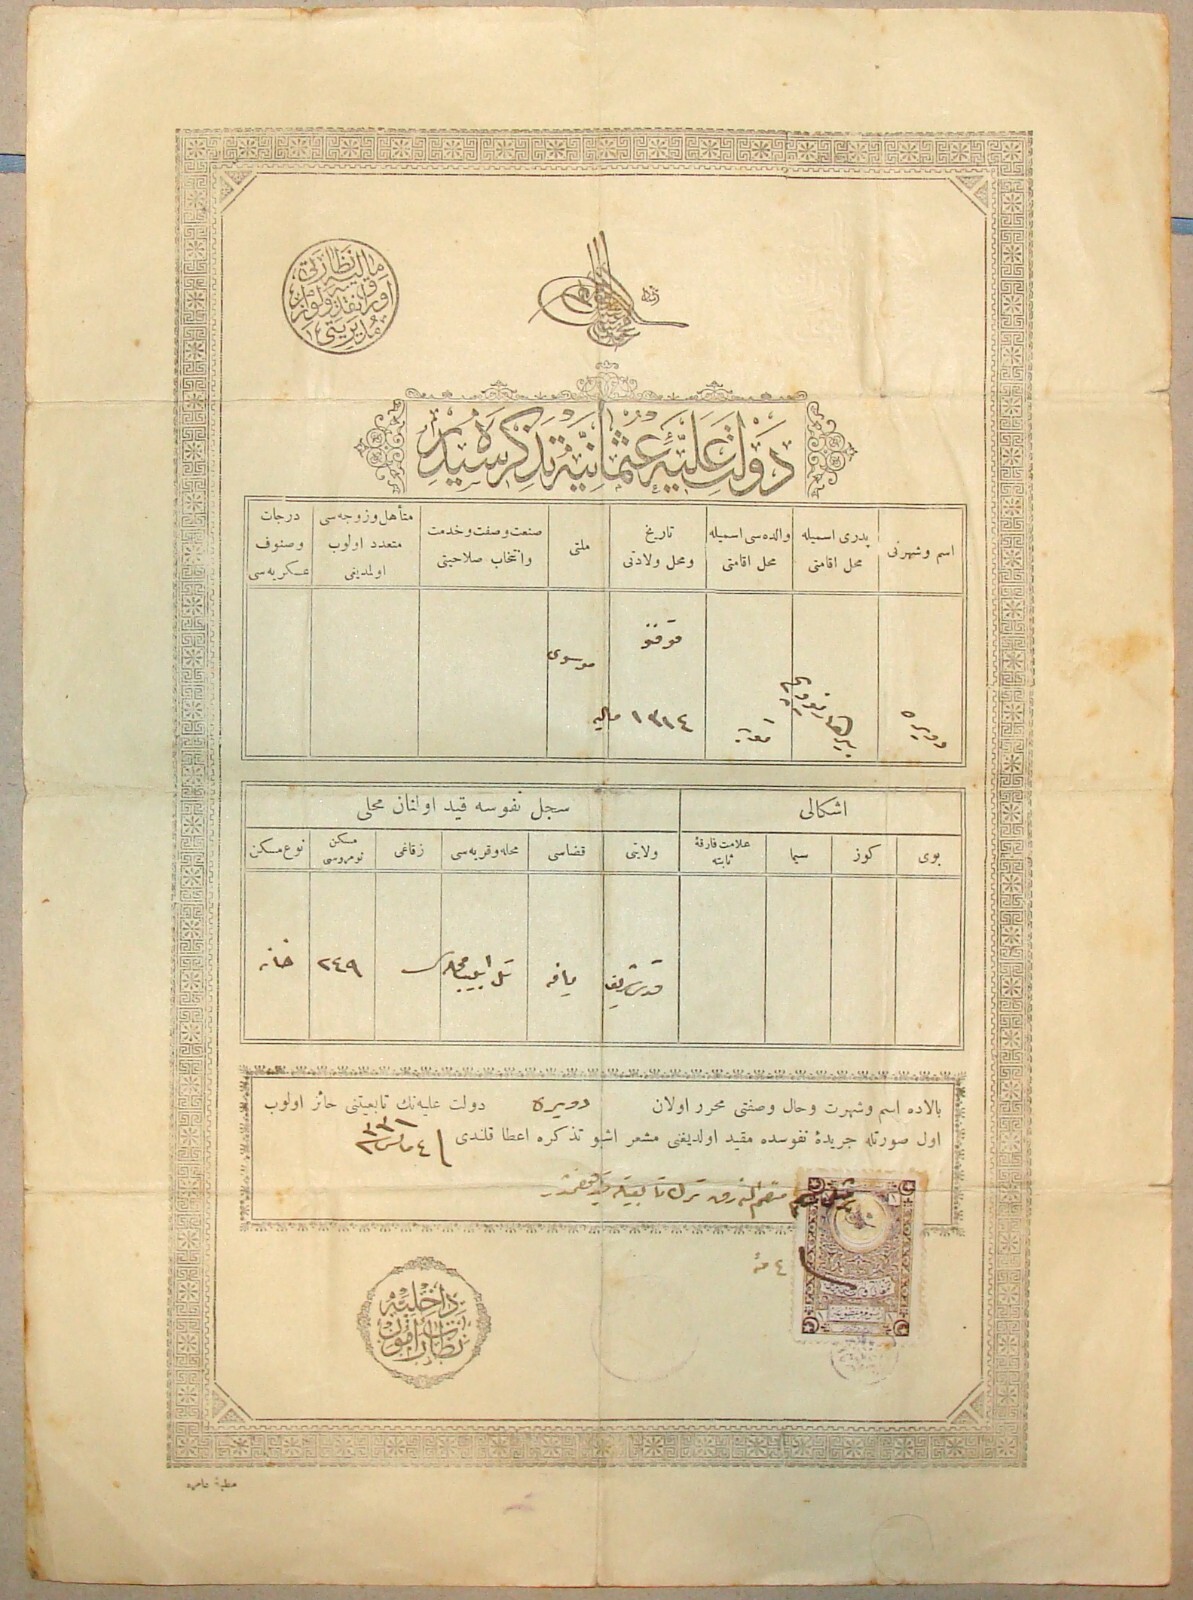 مالیه نظارتی
اوراق نقدیه و لوازم
مدیریتی
دولت علیهٔ عثمانیه تذکره سیدر
اسم و شهرتی
پدری اسمیله محل اقامتی
والده سی اسمیله محل اقامتی
تاریخ و محل ولادتی
ملتی
صنعت و صفت و خدمت و انتخاب صلاحیتی
متأهل و زوجه سی متعدد اولوب اولمدیغی
درجات و صنوف عسکریه سی
دویره
قوفنو
١٣١٤ مالیه
موسوی
اشکالی
سجل نفوسه قید اولنان محلی
بوی
کوز
سیما
علامت فارقهٔ ثابته
ولایتی
قضاسی
محله و قریه سی
زقاغی
مسکن نومروسی
نوع مسکن
قدس شریف
یافه
تل ابیب محله سی
٢٤٩
خانه
بالاده اسم و شهرت و حال و صفتی محرر اولان دویره دولت علیه نك تابعیتنی حائز اولوب
اول صورتله جریدهٔ نفوسده مقید اولدیغنی مشعر اشبو تذکره اعطا قلندی ٤ مارس ٣٣١
داخلیه نظارتی
مطبعهٔ عامره